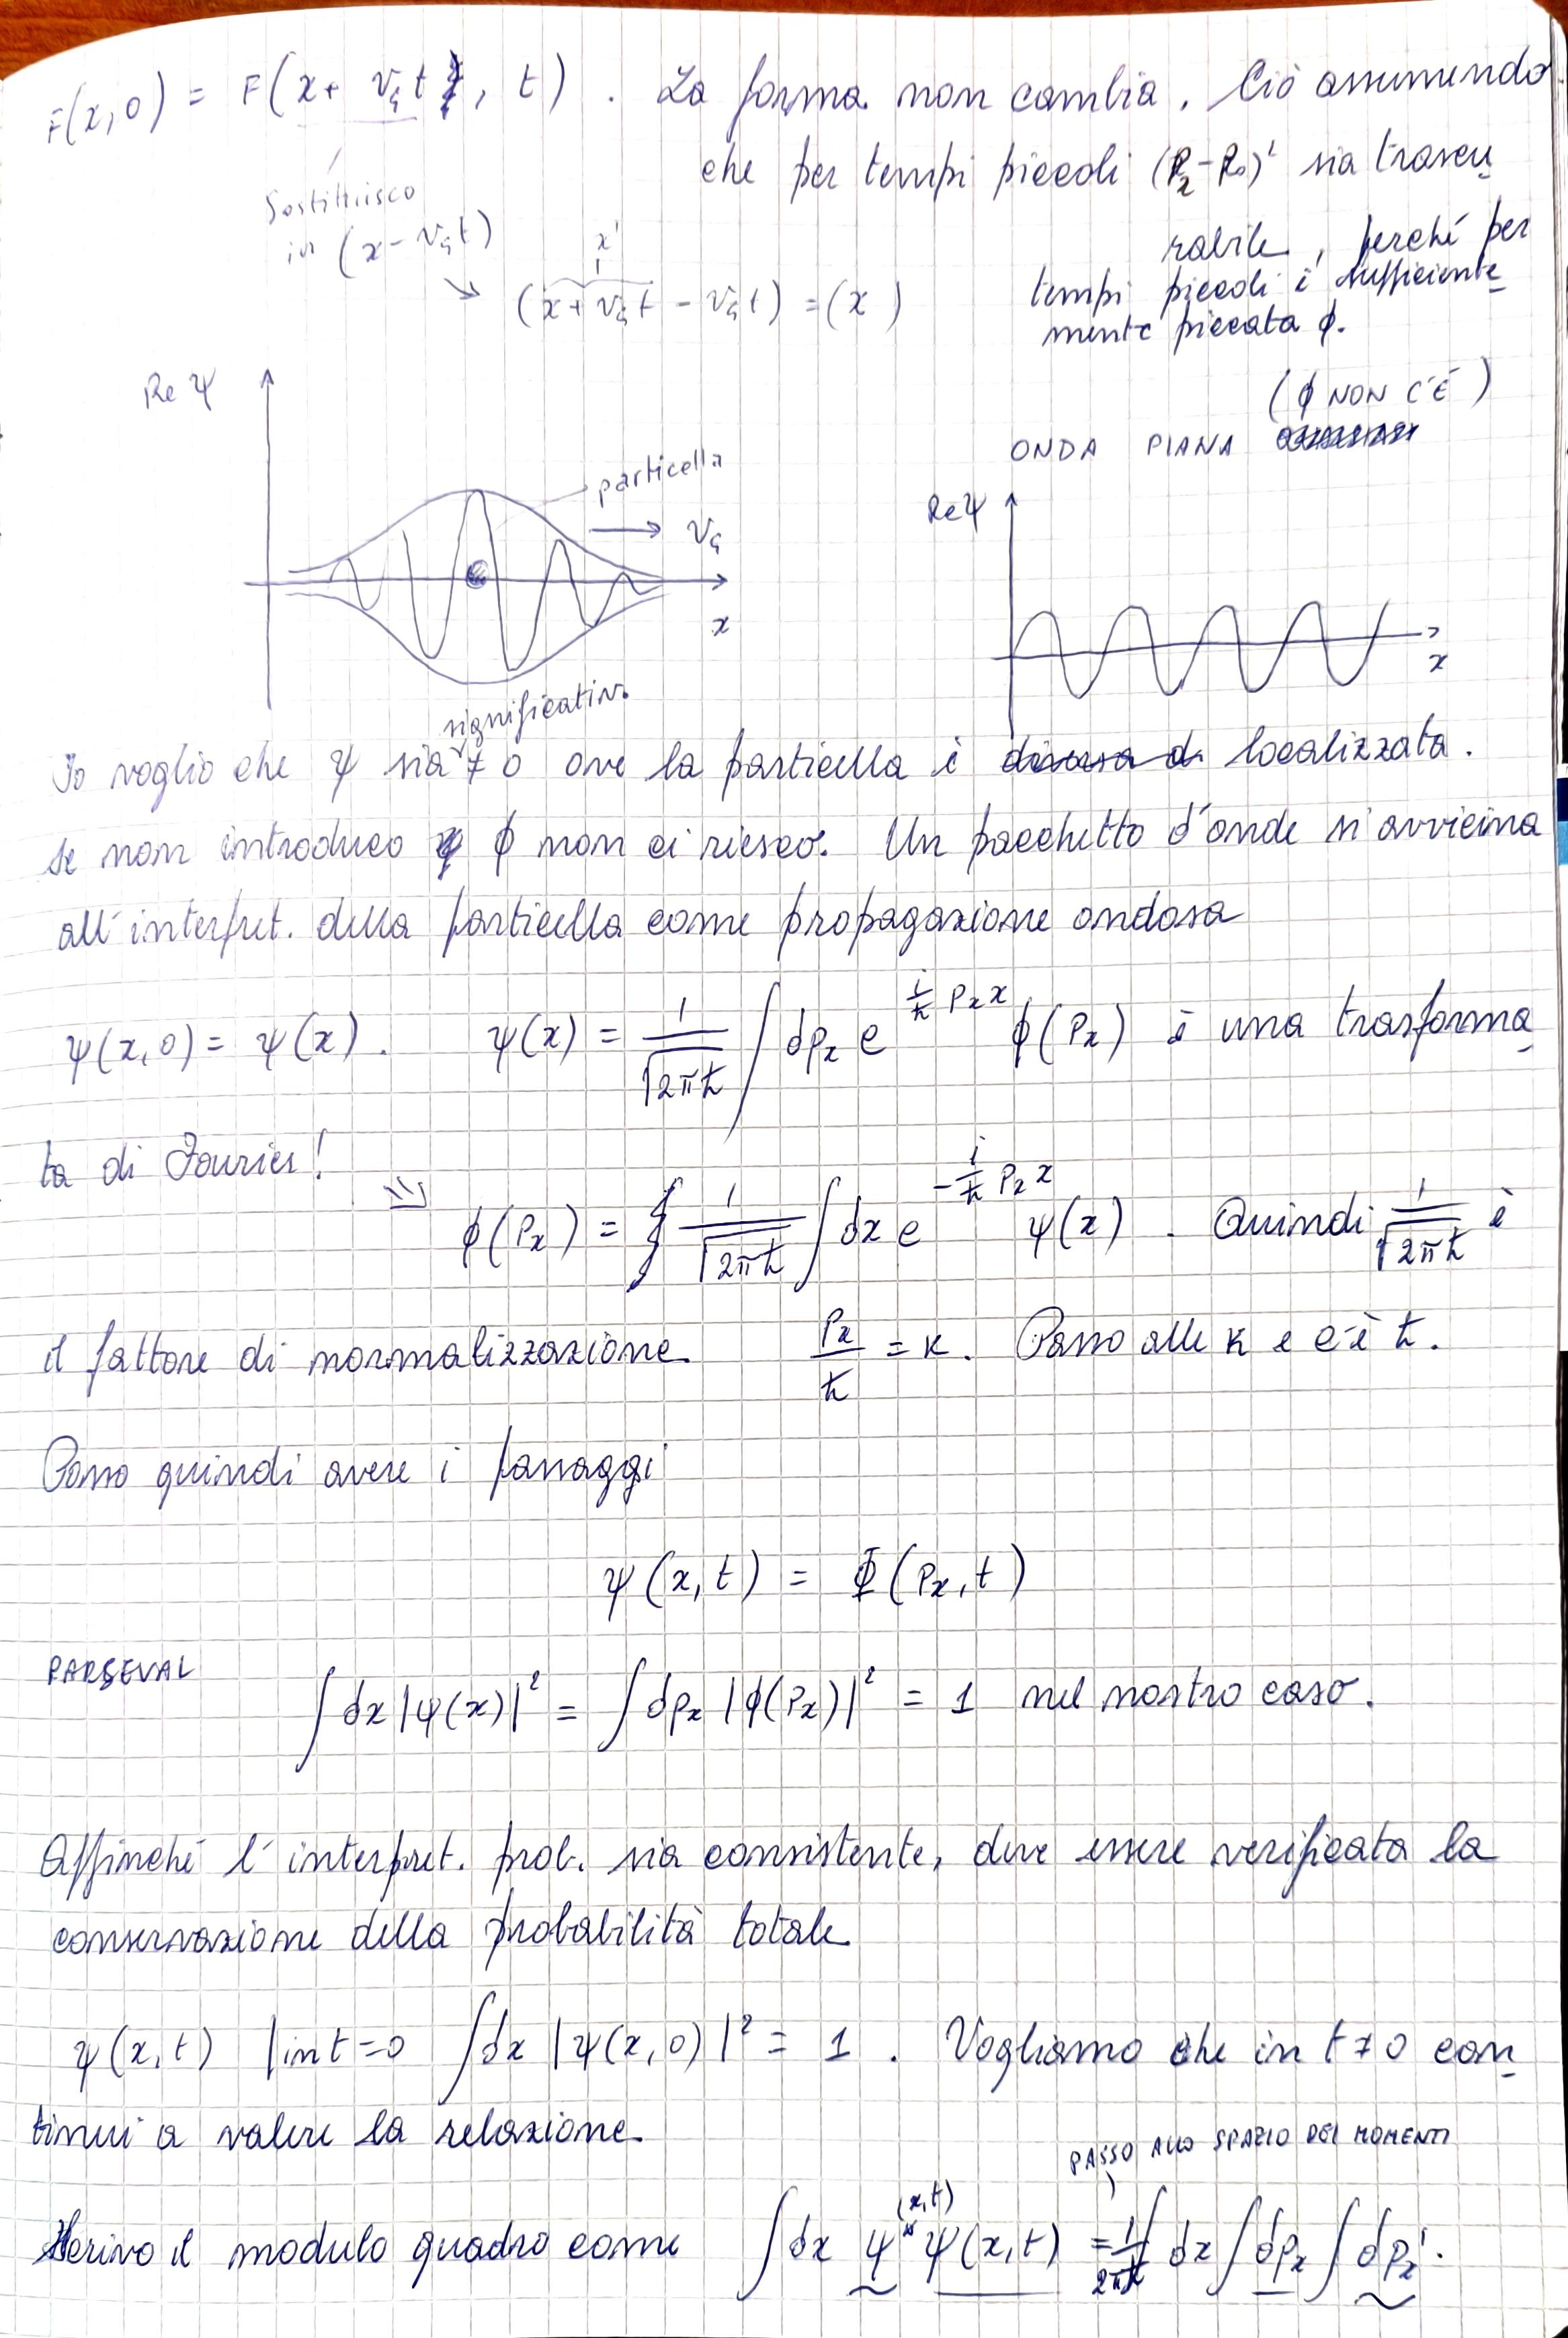 F(x,0) = F(x+ v_G t, t) . La forma non cambia. Ciò assumendo
che per tempi piccoli (P_x-P_0)² sia trascu
Sostituisco
in (x - v_G t)
rabile, perché per
x'
(x + v_G t - v_G t) = (x)
tempi piccoli è sufficiente
mente piccata ϕ.
Re ψ
(ϕ NON C'È)
ONDA PIANA
particella
Re ψ
v_G
x
x
significativ.
Io voglio che ψ sia ≠ 0 ove la particella è localizzata.
se non introduco ϕ non ci riesco. Un pacchetto d'onde s'avvicina
all'interpret. della particella come propagazione ondosa
ψ(x,0) = ψ(x). ψ(x) = 1/√(2πħ) ∫ dp_x e^{i/ħ P_x x} ϕ(P_x) è una trasforma
ta di Fourier!
⇒ ϕ(P_x) = 1/√(2πħ) ∫ dx e^{-i/ħ P_x x} ψ(x) . Quindi 1/√(2πħ) è
il fattore di normalizzazione. P_x/ħ = k. Passo alle k e c'è ħ.
Posso quindi avere i passaggi
ψ(x,t) = Φ(P_x,t)
PARSEVAL
∫ dx |ψ(x)|² = ∫ dp_x |ϕ(P_x)|² = 1 nel nostro caso.
Affinché l'interpret. prob. sia consistente, deve essere verificata la
conservazione della probabilità totale
ψ(x,t) | in t=0 ∫ dx |ψ(x,0)|² = 1 . Vogliamo che in t ≠ 0 con
tinui a valere la relazione.
PASSO ALLO SPAZIO DEI MOMENTI
Scrivo il modulo quadro come ∫ dx ψ*(x,t) ψ(x,t) = 1/2πħ ∫ dx ∫ dp_x ∫ dp_x' .